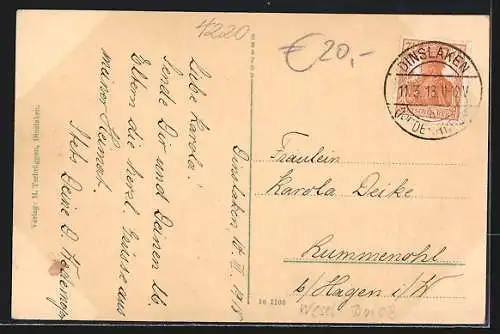 4220
€20,-
DINSLAKEN
11.3.18.11-12V
Dinslaken, 10. III. 1918
Liebe Karola!
Sende Dir und Deinen lb.
Eltern die herzl. Grüsse aus
meiner Heimat.
Stets Deine D. Wedemeyer
Fräulein
Karola Deike
Rummenohl
b/Hagen i/W
Wesel
Verlag: H. Dinslaken.
16 1106